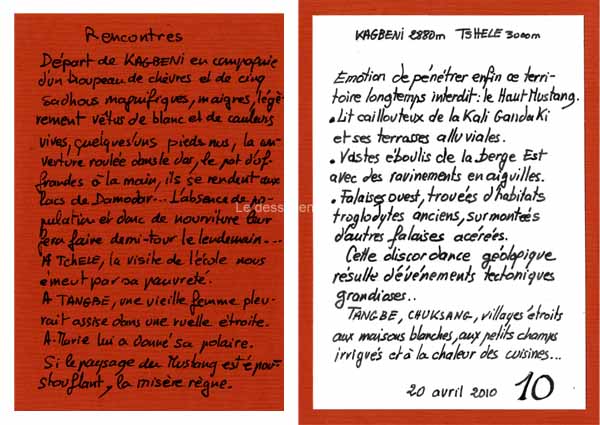 Rencontres
Départ de KAGBENI en compagnie
d'un troupeau de chèvres et de cinq
Sadhous magnifiques, maigres, légè-
rement vêtus de blanc et de couleurs
vives, quelques'uns pieds nus, la cou-
verture roulée dans le dos, le pot d'of-
frandes à la main, ils se rendent aux
lacs de Damodar... L'absence de po-
pulation et donc de nourriture leur
fera faire demi-tour le lendemain...
A TCHELE, la visite de l'école nous
émeut par sa pauvreté.
A TANGBE, une vieille femme pleu-
rait assise dans une ruelle étroite.
A-Marie lui a donné sa polaire.
Si le paysage du Mustang est épous-
touflant, la misère règne.
KAGBENI 2880m TSHELE 3000m
Emotion de pénétrer enfin ce terri-
toire longtemps interdit: le Haut Mustang.
• Lit caillouteux de la Kali Gandaki
et ses terrasses alluviales.
• Vastes éboulis de la berge Est
avec des ravinements en aiguilles.
• Falaises ouest, trouées d'habitats
troglodytes anciens, surmontées
d'autres falaises acérées.
Cette discordance géologique
résulte d'événements tectoniques
grandioses..
TANGBE, CHUKSANG, villages étroits
aux maisons blanches, aux petits champs
irrigués et à la chaleur des cuisines...
20 avril 2010 10